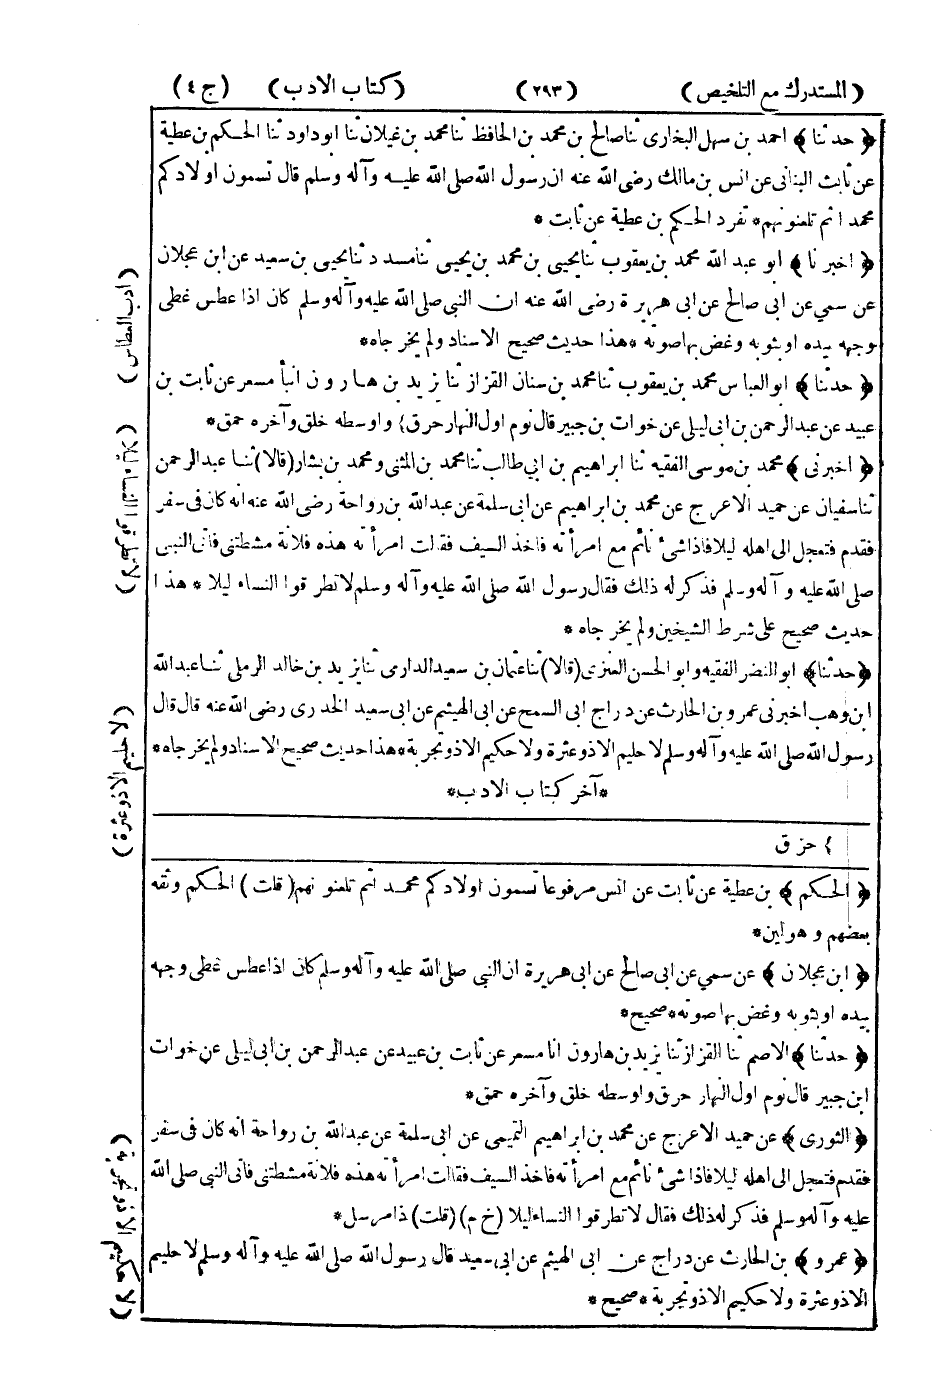 (المستدرك مع التلخيص) (٢٩٣) (كتاب الادب) (ج ٤)
﴿ حدثنا ﴾ احمد بن سهل البخارى ثنا صالح بن محمد بن الحافظ ثنا محمد بن غيلان ثنا ابو داود ثنا الحكم بن عطية
عن ثابت البنانى عن انس بن مالك رضى الله عنه ان رسول الله صلى الله عليه وآله وسلم قال تسمون اولادكم
محمد اثم تلعنونهم * تفرد الحكم بن عطية عن ثابت *
﴿ اخبرنا ﴾ ابو عبد الله محمد بن يعقوب ثنا يحيى بن محمد بن يحيى ثنا مسدد ثنا يحيى بن سعيد عن ابن عجلان
عن سمي عن ابى صالح عن ابى هريرة رضى الله عنه ان النبى صلى الله عليه وآله وسلم كان اذا عطس غطى
وجهه بيده او بثوبه وغض بها صوته * هذا حديث صحيح الاسناد ولم يخرجاه *
﴿ حدثنا ﴾ ابو العباس محمد بن يعقوب ثنا محمد بن سنان القزاز ثنا يزيد بن هارون انبأ مسعر عن ثابت بن
عبيد عن عبد الرحمن بن ابى ليلى عن خوات بن جبير قال نوم اول النهار حرق} واوسطه خلق وآخره حمق *
﴿ اخبرنى ﴾ محمد بن موسى الفقيه ثنا ابراهيم بن ابي طالب ثنا محمد بن المثنى ومحمد بن بشار (قالا) ثنا عبد الرحمن
ثنا سفيان عن حميد الاعرج عن محمد بن ابراهيم عن ابى سلمة عن عبد الله بن رواحة رضى الله عنه انه كان فى سفر
فقدم فتعجل الى اهله ليلا فاذا شئ نائم مع امرأته فاخذ السيف فقالت امرأته هذه فلانة مشطتنى فاتى النبى
صلى الله عليه وآله وسلم فذكر له ذلك فقال رسول الله صلى الله عليه وآله وسلم لا تطرقوا النساء ليلا * هذا
حديث صحيح على شرط الشيخين ولم يخرجاه *
﴿ حدثنا ﴾ ابو النضر الفقيه وابو الحسن العنزى (قالا) ثنا عثمان بن سعيد الدارمى ثنا يزيد بن خالد الرملى ثنا عبد الله
ابن وهب اخبرنى عمرو بن الحارث عن دراج ابى السمح عن ابى الهيثم عن ابى سعيد الخدرى رضى الله عنه قال قال
رسول الله صلى الله عليه وآله وسلم لا حليم الا ذو عثرة ولا حكيم الا ذو تجربة * هذا حديث صحيح الاسناد ولم يخرجاه *
* آخر كتاب الادب *
} خرق
﴿ الحكم ﴾ بن عطية عن ثابت عن انس مرفوعا تسمون اولادكم محمد اثم تلعنونهم (قلت) الحكم وثقه
بعضهم وهو لين *
﴿ ابن عجلان ﴾ عن سمي عن ابى صالح عن ابى هريرة ان النبى صلى الله عليه وآله وسلم كان اذا عطس غطى وجهه
بيده او بثوبه وغض بها صوته * صحيح *
﴿ حدثنا ﴾ الاصم ثنا القزاز ثنا يزيد بن هارون انا مسعر عن ثابت بن عبيد عن عبد الرحمن بن ابى ليلى عن خوات
ابن جبير قال نوم اول النهار حرق واوسطه خلق وآخره حمق *
﴿ الثورى ﴾ عن حميد الاعرج عن محمد بن ابراهيم التيمى عن ابى سلمة عن عبد الله بن رواحة انه كان فى سفر
فقدم فتعجل الى اهله ليلا فاذا شئ نائم مع امرأته فاخذ السيف فقالت امرأته هذه فلانة مشطتنى فاتى النبى صلى الله
عليه وآله وسلم فذكر له ذلك فقال لا تطرقوا النساء ليلا (خ م) (قلت) ذا مرسل *
﴿ عمرو ﴾ بن الحارث عن دراج عن ابى الهيثم عن ابى سعيد قال رسول الله صلى الله عليه وآله وسلم لا حليم
الا ذو عثرة ولا حكيم الا ذو تجربة * صحيح *
(ادب العطاس)
(لا تطرقوا النساء ليلا)
(لا حليم الا ذو عثرة)
(لا حكيم الا ذو تجربة)